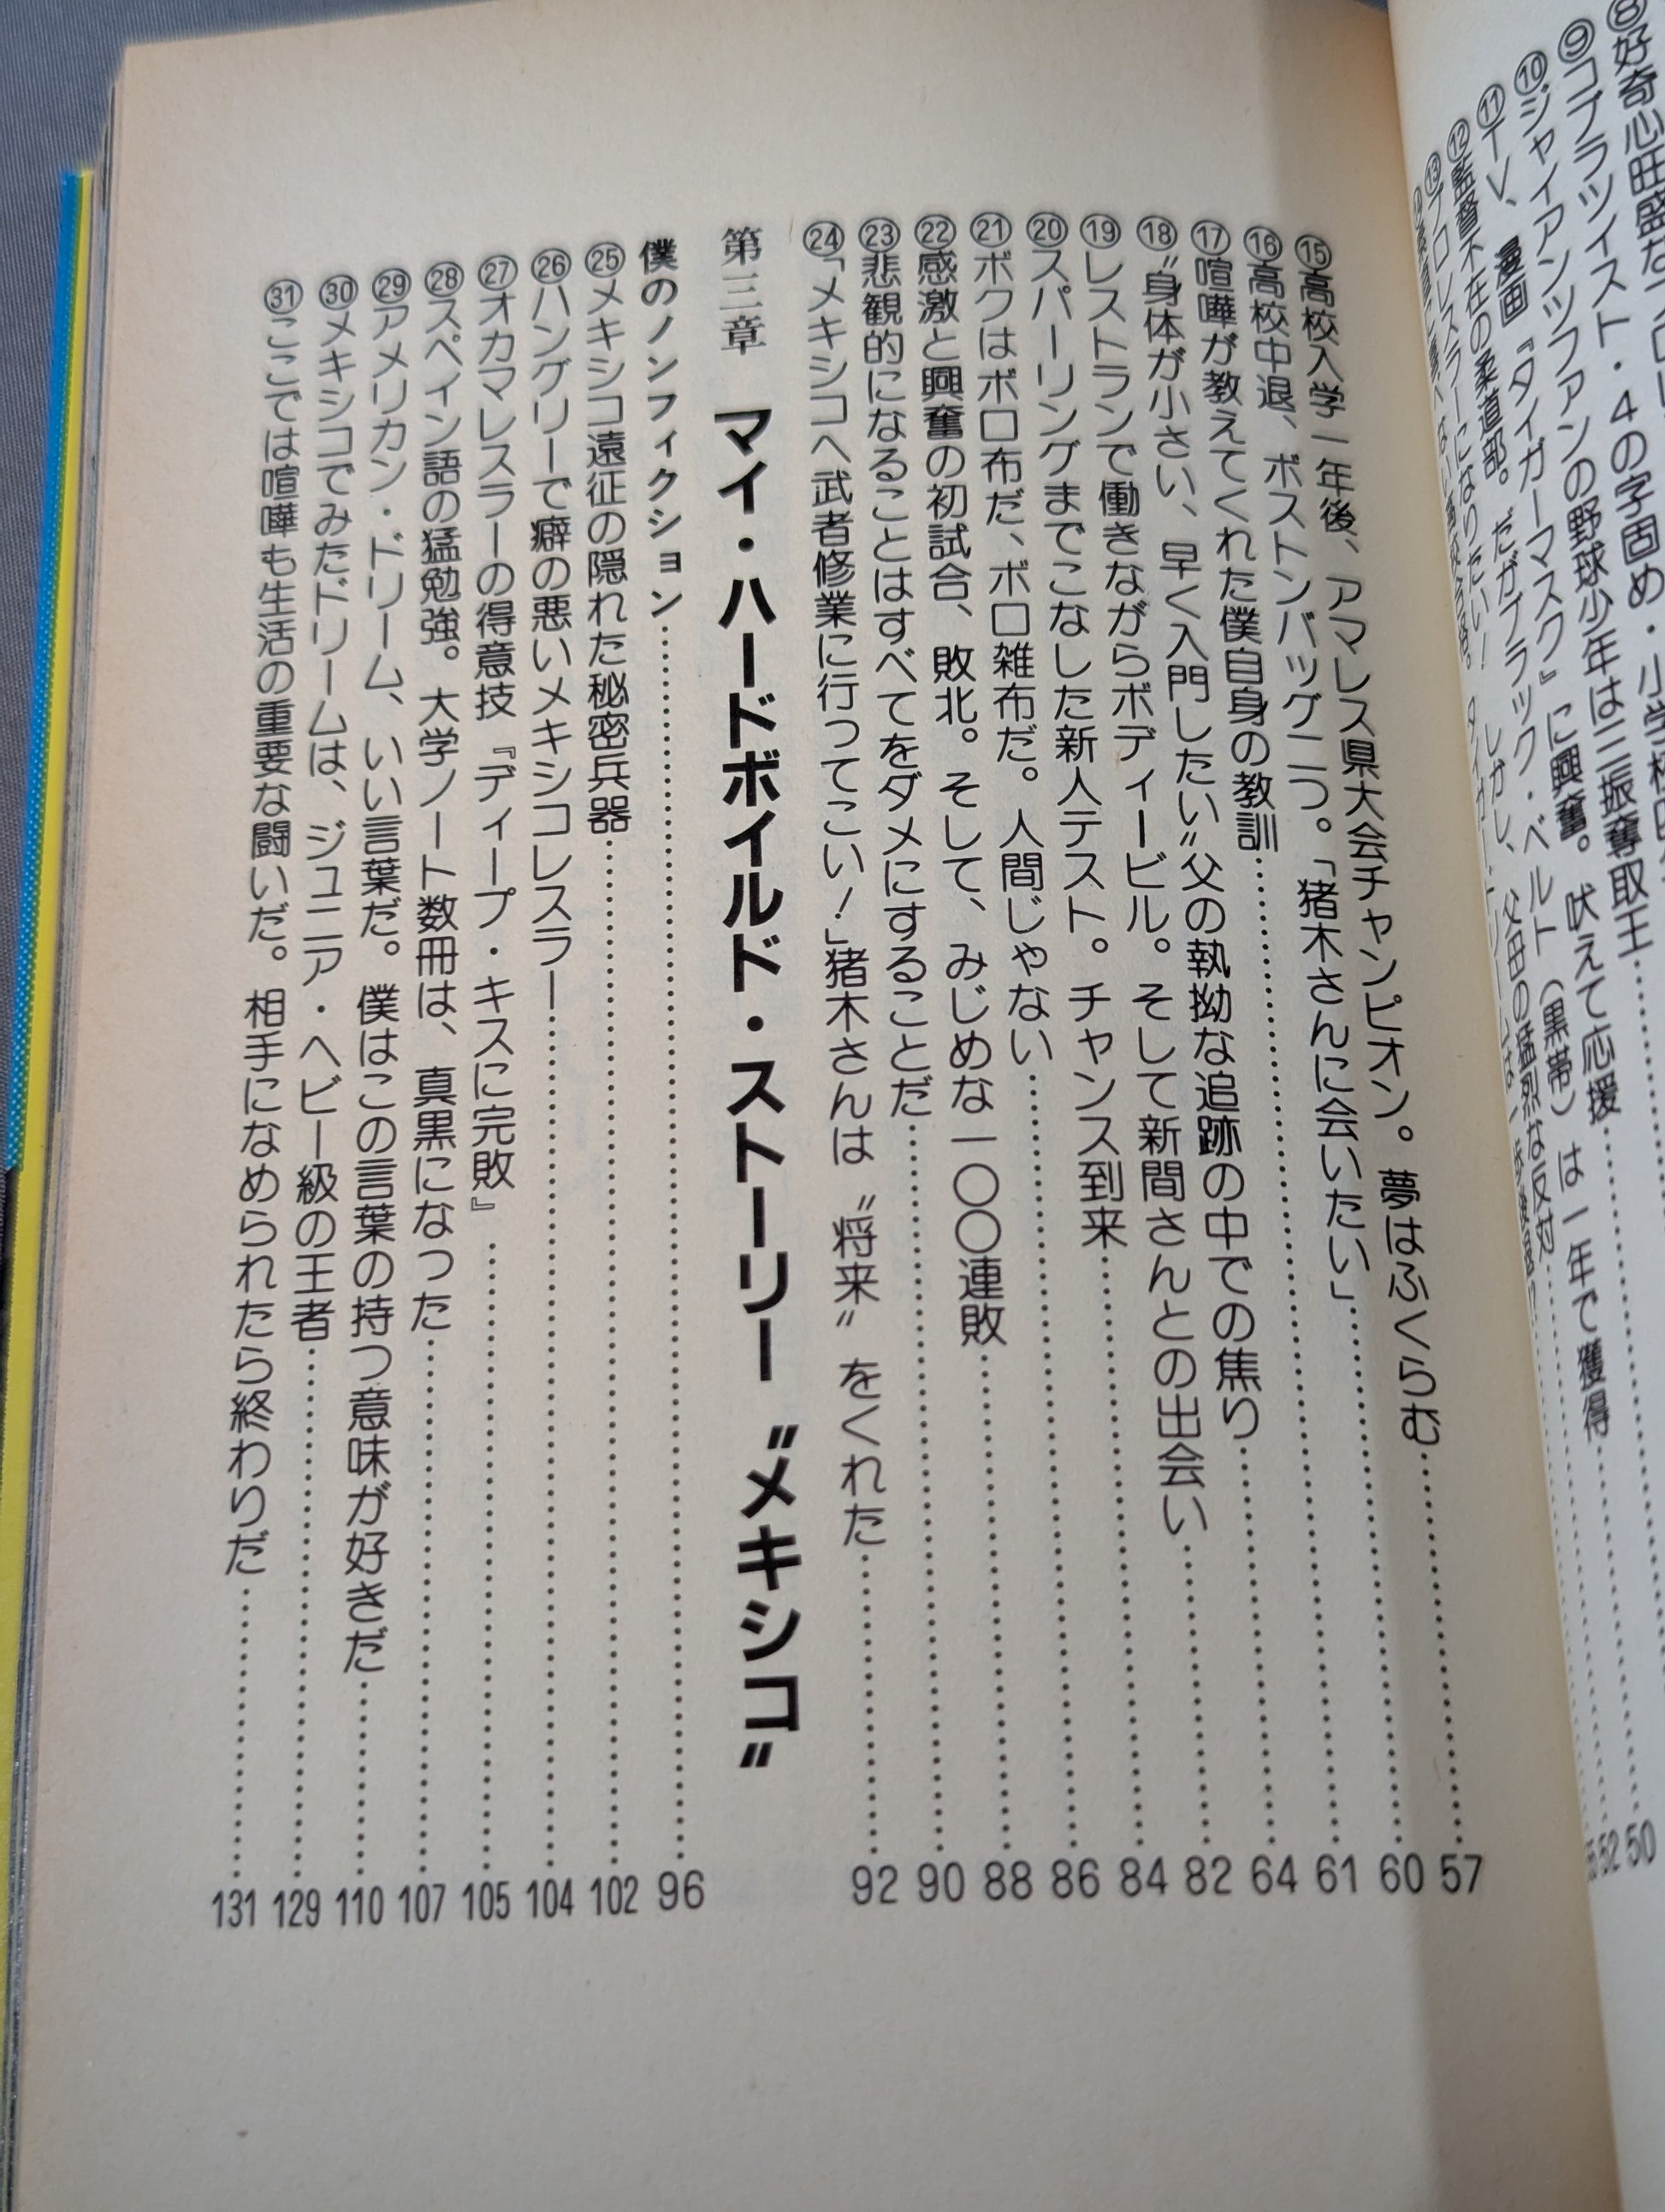 ⑧好奇心旺盛な
⑨コブラツイスト・4の字固め・小学校
⑩ジャイアンツファンの野球少年は三振奪取王
⑪TV、漫画『タイガーマスク』に興奮。吠えて応援
⑫監督不在の柔道部。だがブラック・ベルト(黒帯)は一年で獲得
⑬プロレスラーになりたい!しかし、父母の猛烈な反対
50
52
⑮高校入学一年後、アマレス県大会チャンピオン。夢はふくらむ……57
⑯高校中退、ボストンバッグ二つ。「猪木さんに会いたい」……60
⑰喧嘩が教えてくれた僕自身の教訓……61
⑱〝身体が小さい、早く入門したい〟父の執拗な追跡の中での焦り……64
⑲レストランで働きながらボディービル。そして新間さんとの出会い……82
⑳スパーリングまでこなした新人テスト。チャンス到来……84
㉑ボクはボロ布だ、ボロ雑布だ。人間じゃない……86
㉒感激と興奮の初試合、敗北。そして、みじめな一〇〇連敗……88
㉓悲観的になることはすべてをダメにすることだ……90
㉔「メキシコへ武者修業に行ってこい!」猪木さんは〝将来〟をくれた……92
第三章 マイ・ハードボイルド・ストーリー〝メキシコ〟
僕のノンフィクション……96
㉕メキシコ遠征の隠れた秘密兵器……102
㉖ハングリーで癖の悪いメキシコレスラー……104
㉗オカマレスラーの得意技『ディープ・キスに完敗』……105
㉘スペイン語の猛勉強。大学ノート数冊は、真黒になった……107
㉙アメリカン・ドリーム、いい言葉だ。僕はこの言葉の持つ意味が好きだ……110
㉚メキシコでみたドリームは、ジュニア・ヘビー級の王者……129
㉛ここでは喧嘩も生活の重要な闘いだ。相手になめられたら終わりだ……131